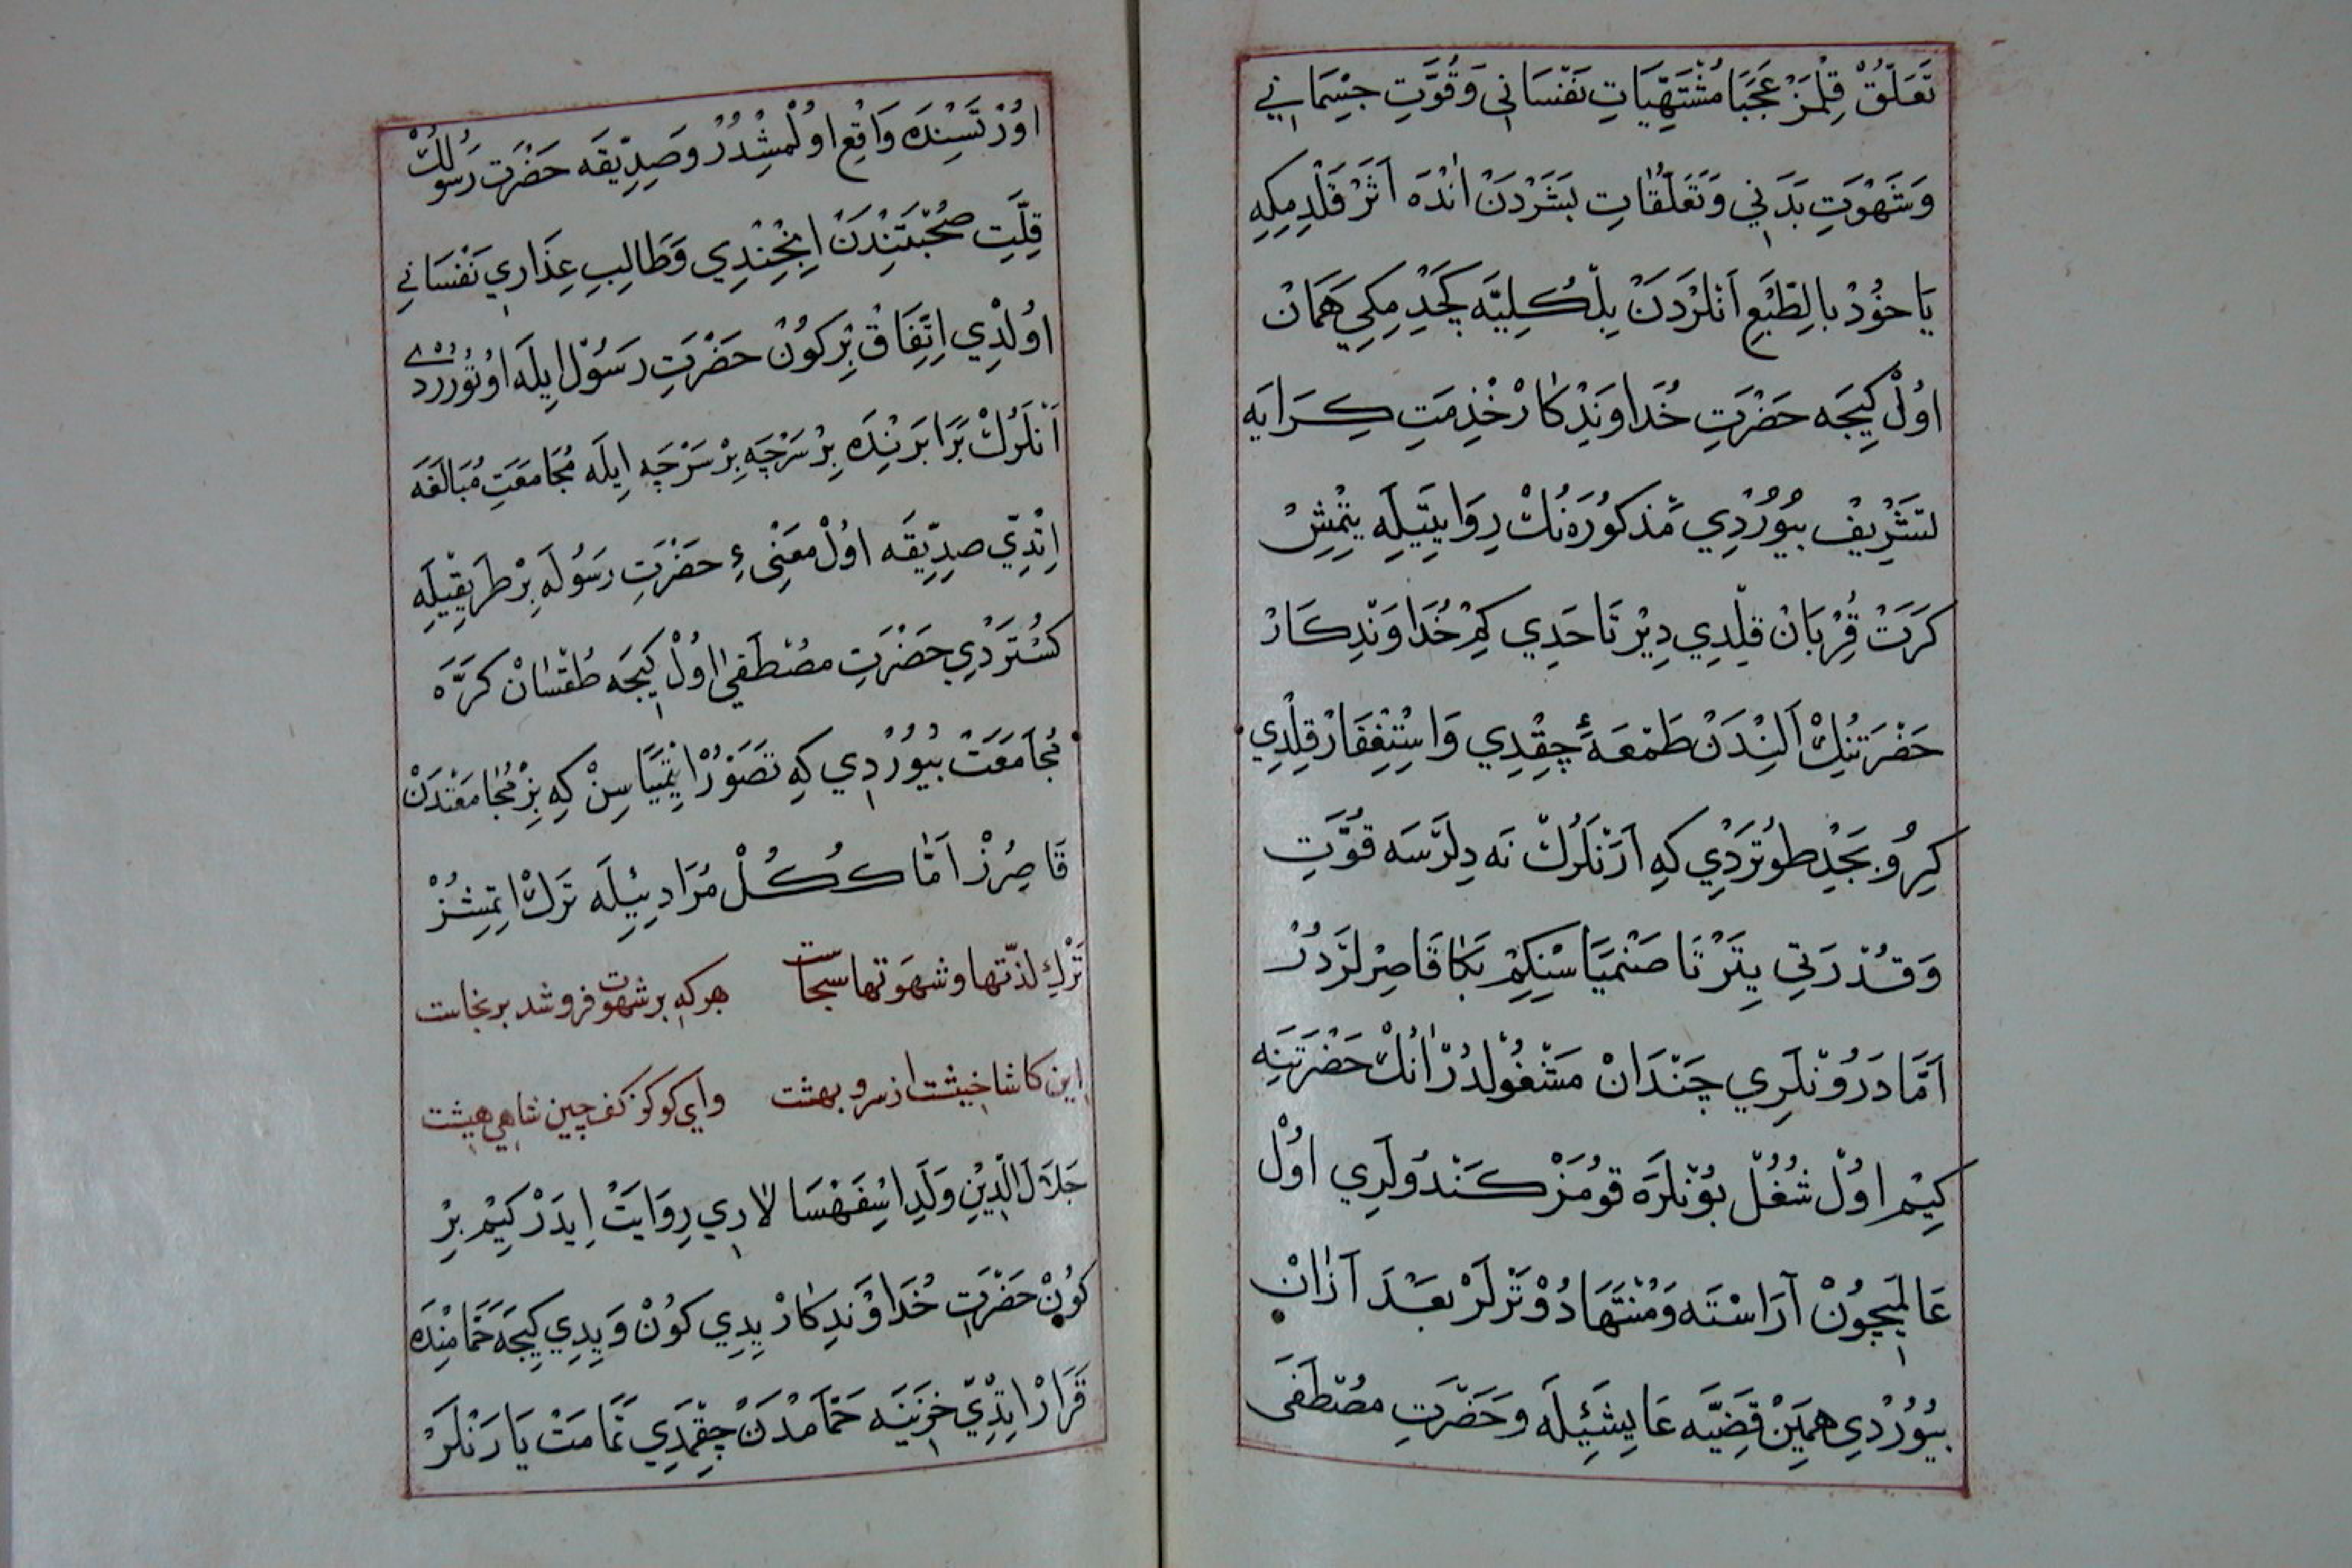 تَعَلُّقْ قِلْمَزْ عَجَبَا مُشْتَهِيَّاتِ نَفْسَانِى وَ قُوَّتِ جِسْمَانِي
وَشَهْوَتِ بَدَنِي وَتَعَلُّقَاتِ بَشَرْدَنْ اَنْدَه اَثَرْ قَلْدِمِكِه
يَا خُوْدْ بِالطَّبْعِ اَنْلَرْدَنْ بِلْكُلِيَّه كَچْدِمِكِي هَمَانْ
اوُلْ كِيجَه حَضْرَتِ خُدَاوَنْدِكَارْ خْذِمَتِ كِرَايَه
تَشْرِيفْ بُيُورْدِي مَذكوُرَه نُكْ رِوَايَتِيلَه يِتْمِشْ
كَرَتْ قُرْبَانْ قِلْدِي دِيْرْ تَا حَدِي كِمْ خُدَاوَنْدِكَارْ
حَضْرَتِنِكْ اَلِنْدَنْ طَمْعَهٔ چِقْدِي وَاسْتِغْفَارْ قِلْدِي
كِرُو بَجْدِ طوُتَرْدِي كِه اَرَنْلَرُكْ نَه دِلَرْسَه قُوَّتِ
وَقُدْرَتِي يِتَرْ تَا صَنْمَيَاسِنْكِمْ بَكَا قَاصِرْ لَرْدُرْ
اَمَّا دَرُوُنْلَرِي چَنْدَانْ مَشْغُولْدُرْ اَنُكْ حَضْرَتِنَه
كِيْم اوُلْ شُغُلْ بوُنْلَرَه قوُمَزْ كَنْدوُلَرِي اوُلْ
عَالَمِيچُونْ آرَاسْتَه وَمُنْتَهَا دُوُتَرْلَرْ بَعْدَ اَزَانْ
بُيُورْدِي هَمِينْ قَضِيَّه عَايِشَئِيلَه وَحَضْرَتِ مُصْطَفَى
اوُزْتَسِنْدَه وَاقِعْ اوُلْمِشْدُرْ وَصِدِّيقَه حَضْرَتِ رَسوُلُكْ
قِلَّتِ صُحْبَتِنْدَنْ اِنْجِنْدِي وَطَالِبِ عِذَارِي نَفْسَانِي
اوُلْدِي اِتِّفَاقْ بِرْكوُنْ حَضْرَتِ رَسُوْل اِيلَه اوُتُورُرْدِي
اَنْلَرُكْ بَرَابَرِنْدَه بِرْ سَرْچَه بِرْ سَرْچَه اِيلَه مُجَامَعَتِ مُبَالَغَه
اِتْدِي صِدِّيقَه اوُلْ مَعْنِىءِ حَضْرَتِ رَسُوْلَه بِرْ طَرِيقِيلَه
كُسْتَرْدِي حَضْرَتِ مُصْطَفَى اوُلْ كِيجَه طُقْسَانْ كَرَّه
مُجَامَعَتْ بُيُورْدِي كِه تَصَوُّرْ اِتْمَيَاسِنْ كِه بِزْ مُجَامَعَتْدَنْ
قَاصِرُزْ اَمَّا كُكُلْ مُرَادِيئِلَه تَرْكْ اِتْمِشُزْ
تَرْكِ لذّتها وشهوَتها سخاست هركه برشهوت فروشد برنخاست
اين كا شاخيشت از سرو بهشت واي كو كز كف چنين شاهي هيشت
جَلَالَ الدِّينِ وَلَدِ اسْفَهْسَالَارِي رِوَايَتْ اِيدَرْ كِيْم بِرْ
كوُنْ حَضْرَتِ خُدَاوَنْدِكَارْ يِدِي كوُنْ وَيِدِي كِيجَه حَمَّامْنَدَه
قَرَارْ اِيتْدِي خَزِينَه حَمَّامْدَنْ چِقْمَدِي تَمَامَتْ يَارَنْلَرْ